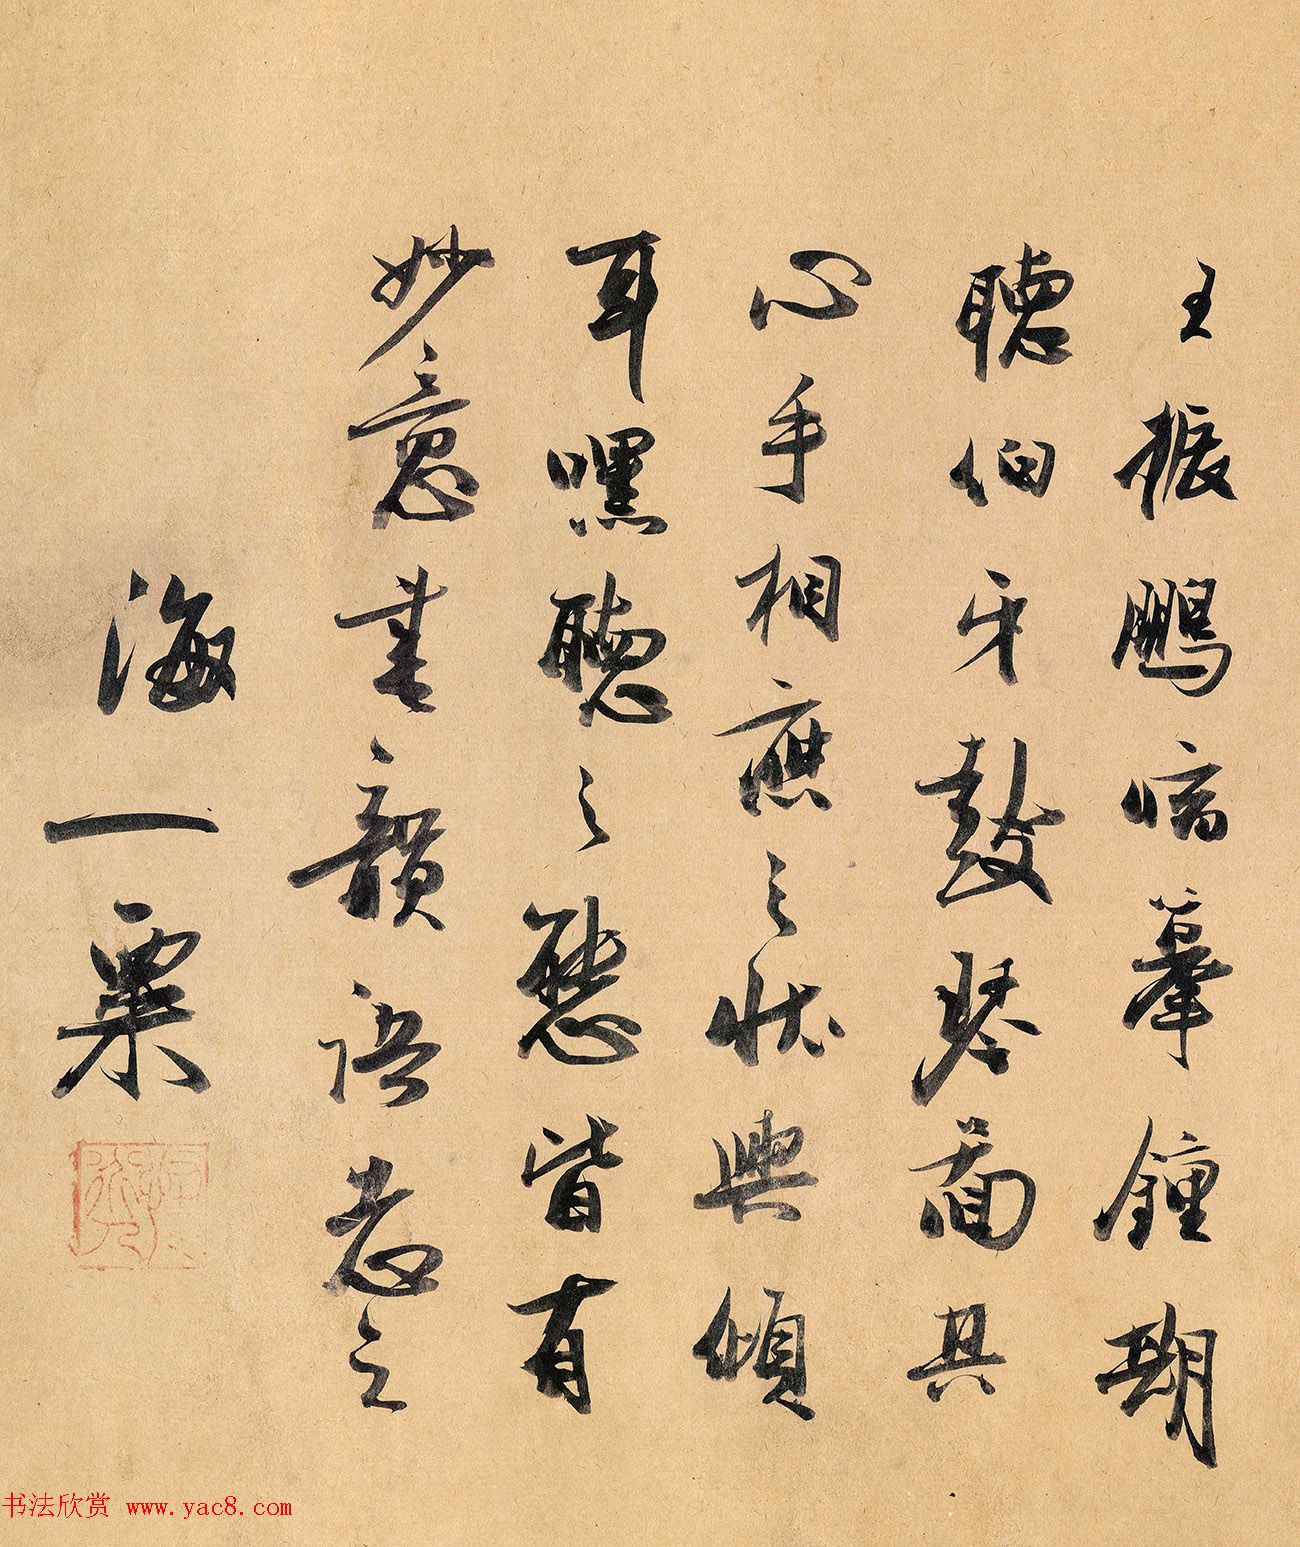 王振鵬臨摹鐘期
聽伯牙鼓琴圖具
心手相應之狀與傾
耳嘿聽之態皆有
妙意書韻語卷之
海一粟
书法欣赏 www.yac8.com